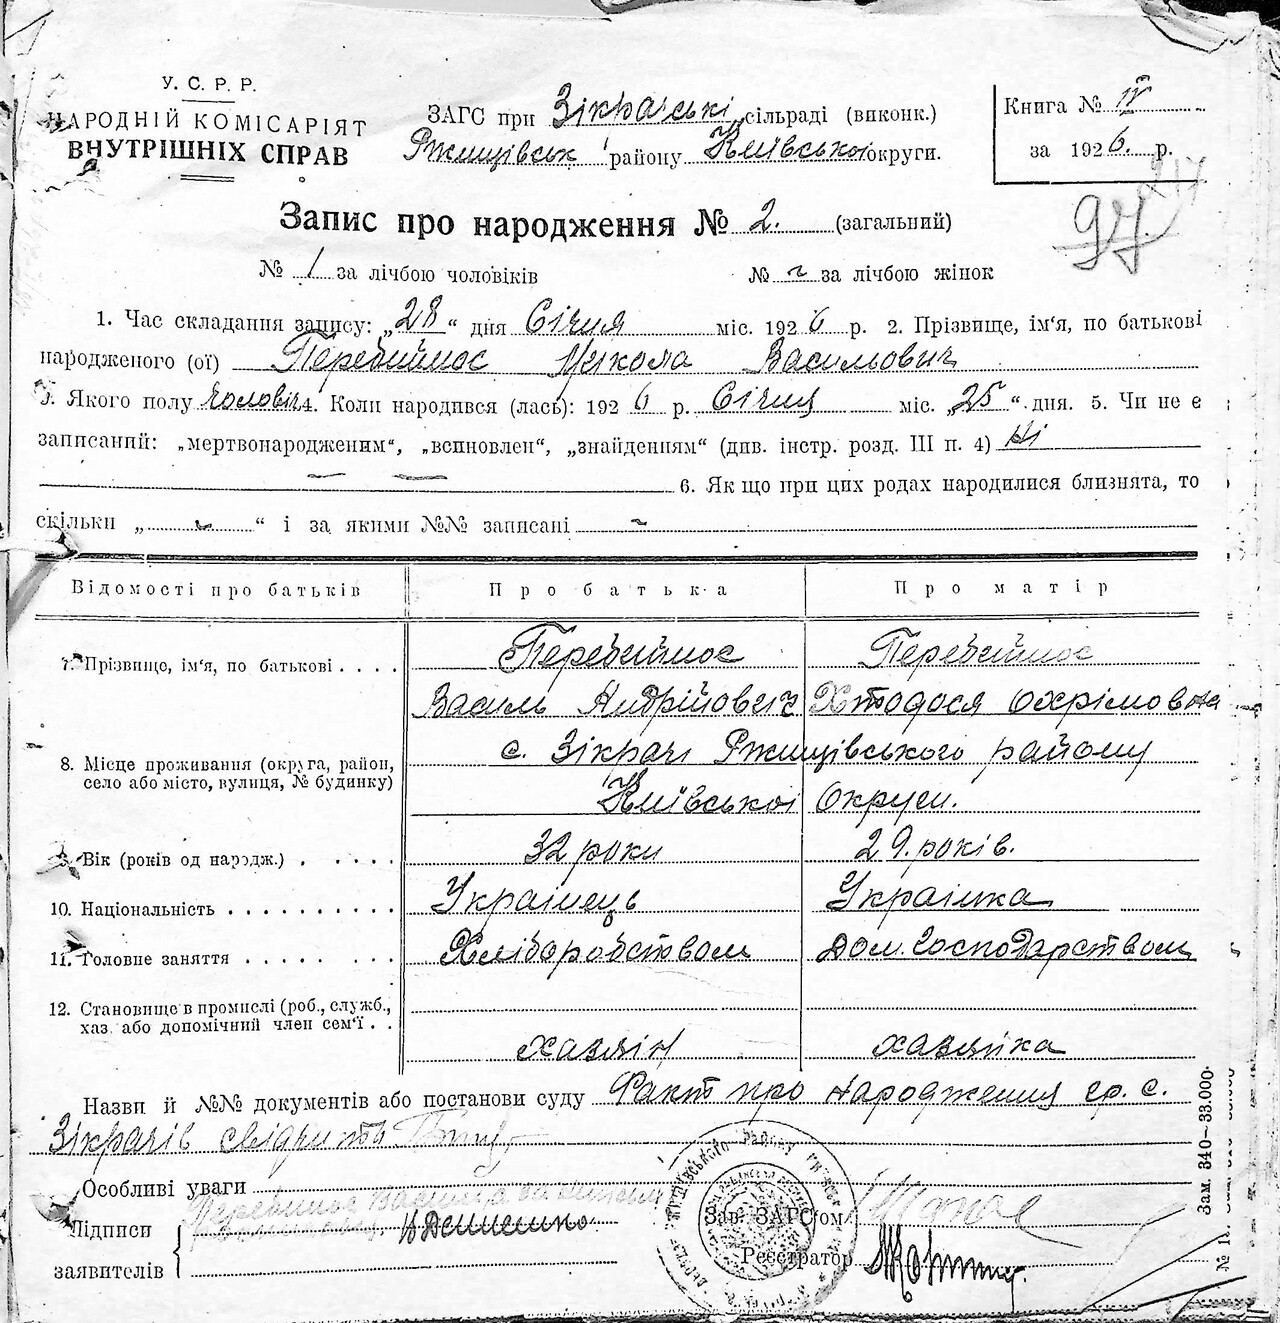 У. С. Р. Р.
НАРОДНІЙ КОМІСАРІЯТ
ВНУТРІШНІХ СПРАВ
ЗАГС при Зікрачські сільраді (виконк.)
Ржищівськ району Київської округи.
Книга № IV
за 1926. р.
97
Запис про народження № 2. (загальний)
№ 1 за лічбою чоловіків № за лічбою жінок
1. Час складання запису: „28“ дня Січня міс. 1926 р. 2. Прізвище, ім'я, по батькові
народженого (ої) Перебийнос Микола Васильович
3. Якого полу чоловіч 4. Коли народився (лась): 1926 р. Січня міс. „25“ дня. 5. Чи не є
записаний: „мертвонародженим“, „всиновлен“, „знайденням“ (див. інстр. розд. III п. 4) Ні
6. Як що при цих родах народилися близнята, то
скільки „ “ і за якими №№ записані
Відомості про батьків Про батька Про матір
7. Прізвище, ім'я, по батькові . . . . Перебийнос Перебийнос
Василь Андрійович Хтодося Охрімовна
8. Місце проживання (округа, район, с. Зікрачі Ржищівського району
село або місто, вулиця, № будинку) Київської Округи.
9. Вік (років од народж.) . . . . . 32 роки 29. років.
10. Національність . . . . . . . . . . Українець Українка
11. Головне заняття . . . . . . . . Хліборобством Дом. Господарством
12. Становище в промислі (роб., служб.,
хаз. або допомічний член сем'ї . . хазяїн хазяйка
Назви й №№ документів або постанови суду Факт про народження гр. с.
Зікрачів свідчить
Особливі уваги
Підписи
заявителів
Зав. ЗАГС'ом
Реєстратор
Зам. 340—33.000.